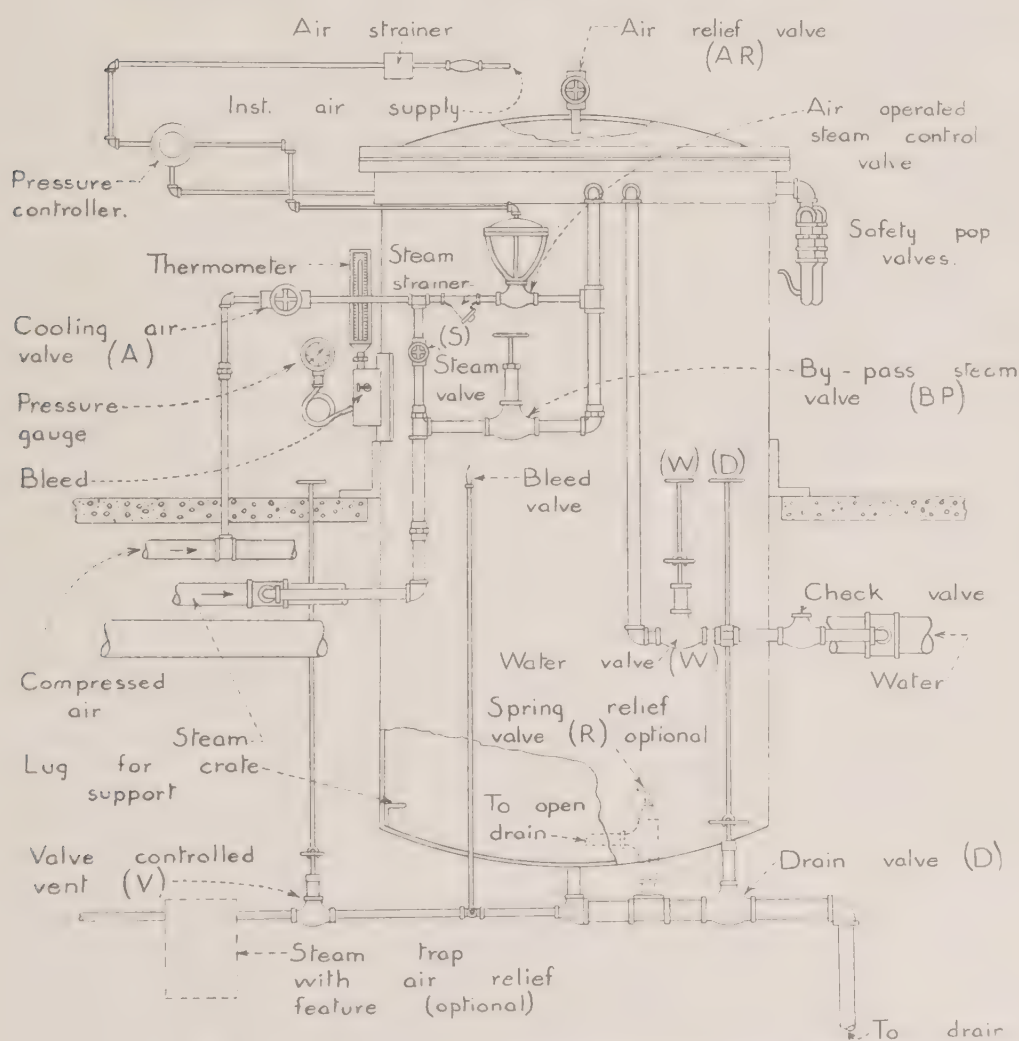 Air strainer
Air relief valve
(AR)
Inst. air supply
Air operated
steam control
valve
Pressure
controller.
Safety pop
valves.
Thermometer
Steam
strainer
Cooling air
valve (A)
(S)
Steam
valve
By-pass steam
valve (BP)
Pressure
gauge
Bleed
Bleed
valve
(W) (D)
Check valve
Water valve (W)
Water
Compressed
air
Spring relief
valve (R) optional
Steam
Lug for crate
support
To open
drain
Valve controlled
vent (V)
Drain valve (D)
Steam trap
with air relief
feature (optional)
To drain